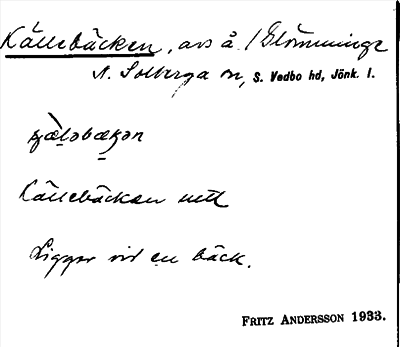 Källebäcken, avs å /Glömminge
N. Solberga sn, S. Vedbo hd, Jönk. l.
Källebäcken
Ligger vid en bäck.
FRITZ ANDERSSON 1933.